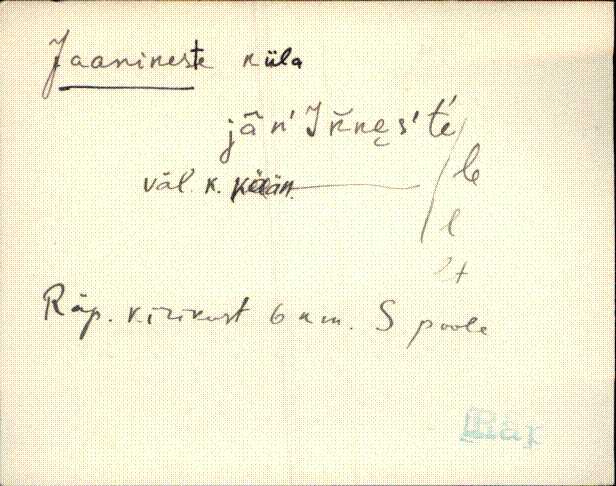 Jaanineste küla
jān' Ik̆nęs' t'é
väl. k. kään. le
l
lt
Räp. kirikust 6 km. S poole
Räp